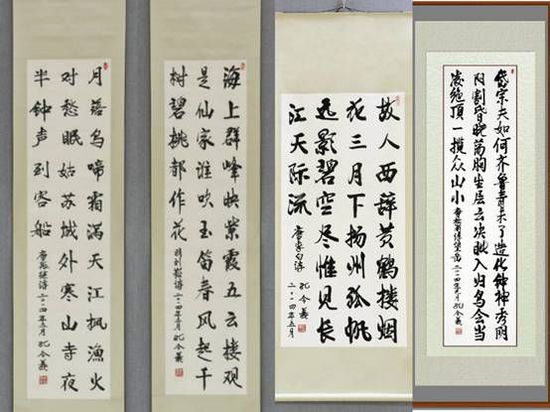 月落乌啼霜满天江枫漁火
对愁眠姑苏城外寒山寺夜
半钟声到客船
唐张继诗 二〇〇四年五月 孔令义
海上群峰映紫霞五云楼观
是仙家谁吹玉笛春风起千
树碧桃都作花
诗 二〇〇四年五月 孔令义
故人西辞黄鹤楼烟
花三月下扬州孤帆
远影碧空尽惟见长
江天际流
唐李白诗
二〇〇四年五月 孔令义
岱宗夫如何齐鲁青未了造化钟神秀阴
阳割昏晓荡胸生层云决眦入归鸟会当
凌绝顶一揽众山小
二〇〇四年 孔令义